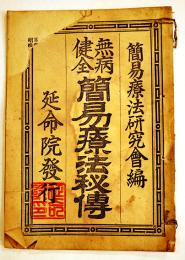 簡易療法研究會編
無病
健全
簡易療法秘傳
延命院發行